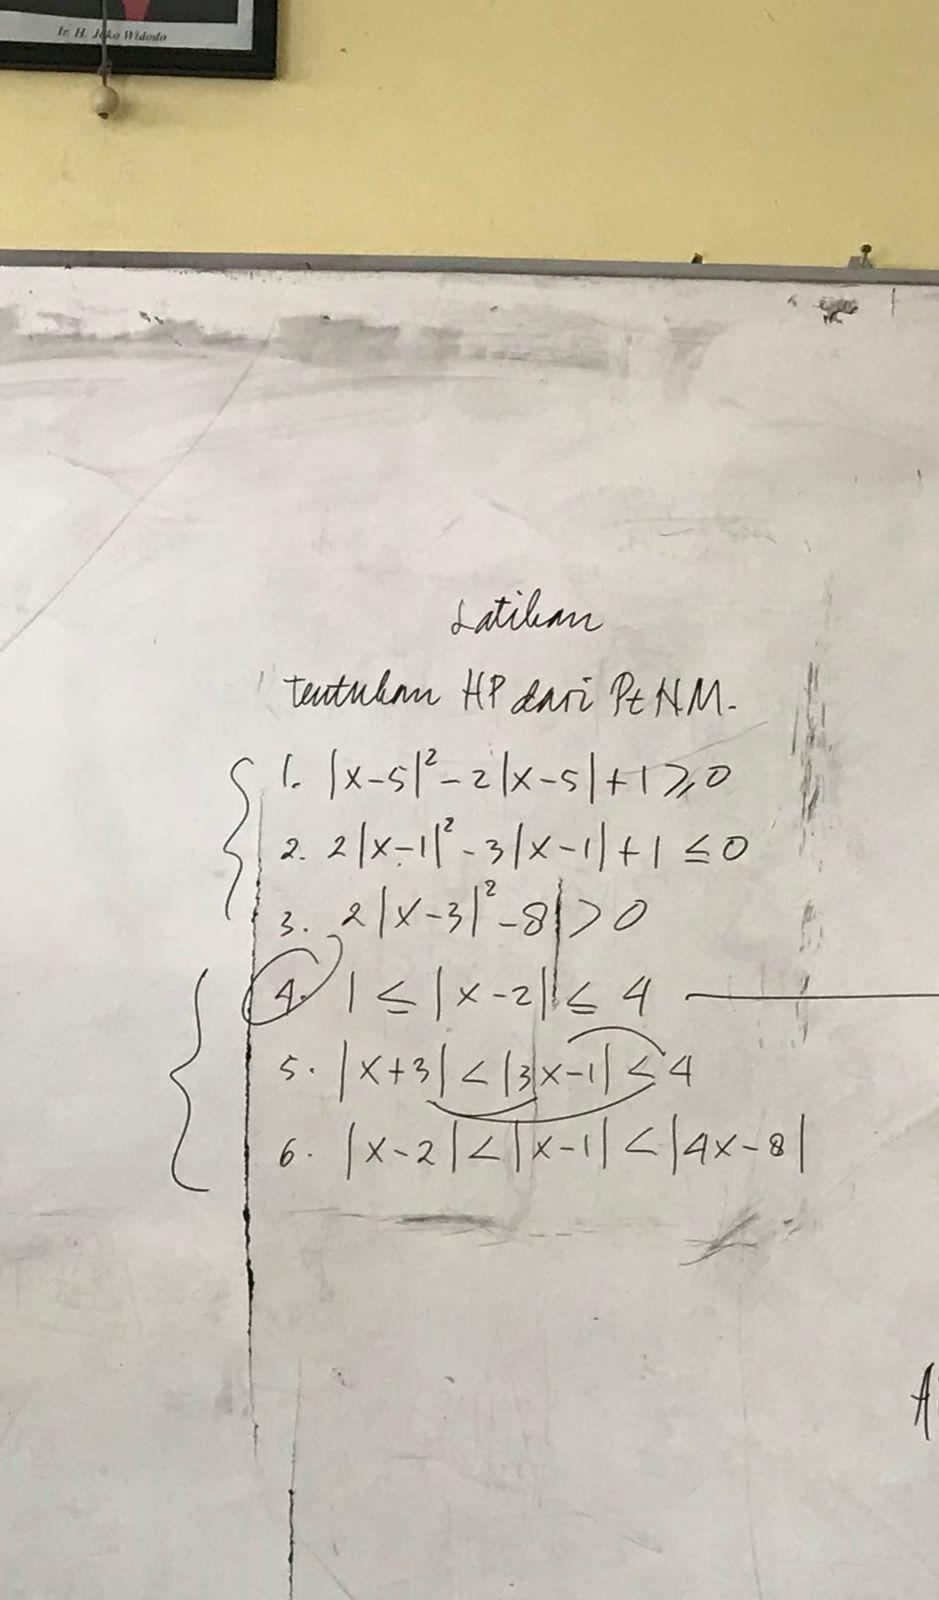 Ir. H. Joko Widodo
Latihan
tentukan HP dari PtNM.
1. |x-5|² - 2|x-5| + 1 ≥ 0
2. 2|x-1|² - 3|x-1| + 1 ≤ 0
3. 2|x-3|² - 8 > 0
4. 1 ≤ |x-2| ≤ 4
5. |x+3| < |3x-1| ≤ 4
6. |x-2| < |x-1| < |4x-8|
A